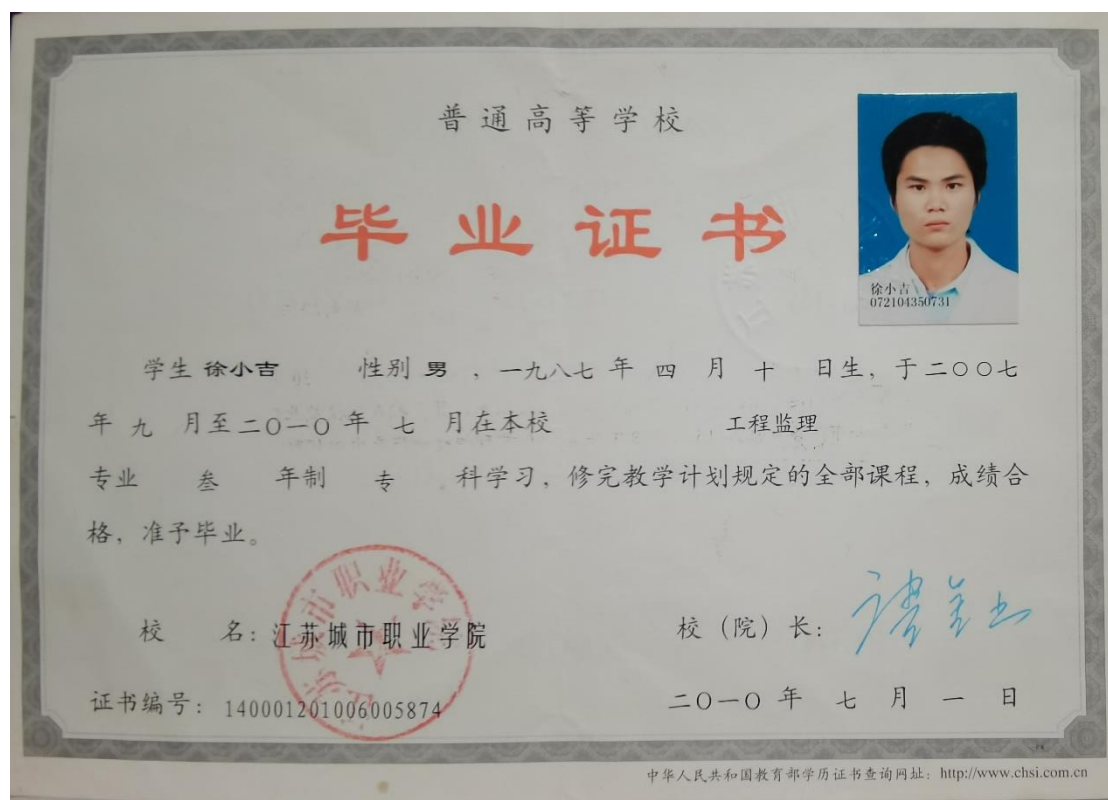 普通高等学校
毕业证书
徐小吉
072104350731
学生 徐小吉 性别 男 ，一九八七 年 四 月 十 日生，于二〇〇七
年 九 月至二〇一〇 年 七 月在本校 工程监理
专业 叁 年制 专 科学习，修完教学计划规定的全部课程，成绩合
格，准予毕业。
江苏城市职业学院
校 名：江苏城市职业学院
校（院）长：
证书编号：140001201006005874
二〇一〇 年 七 月 一 日
中华人民共和国教育部学历证书查询网址：http://www.chsi.com.cn